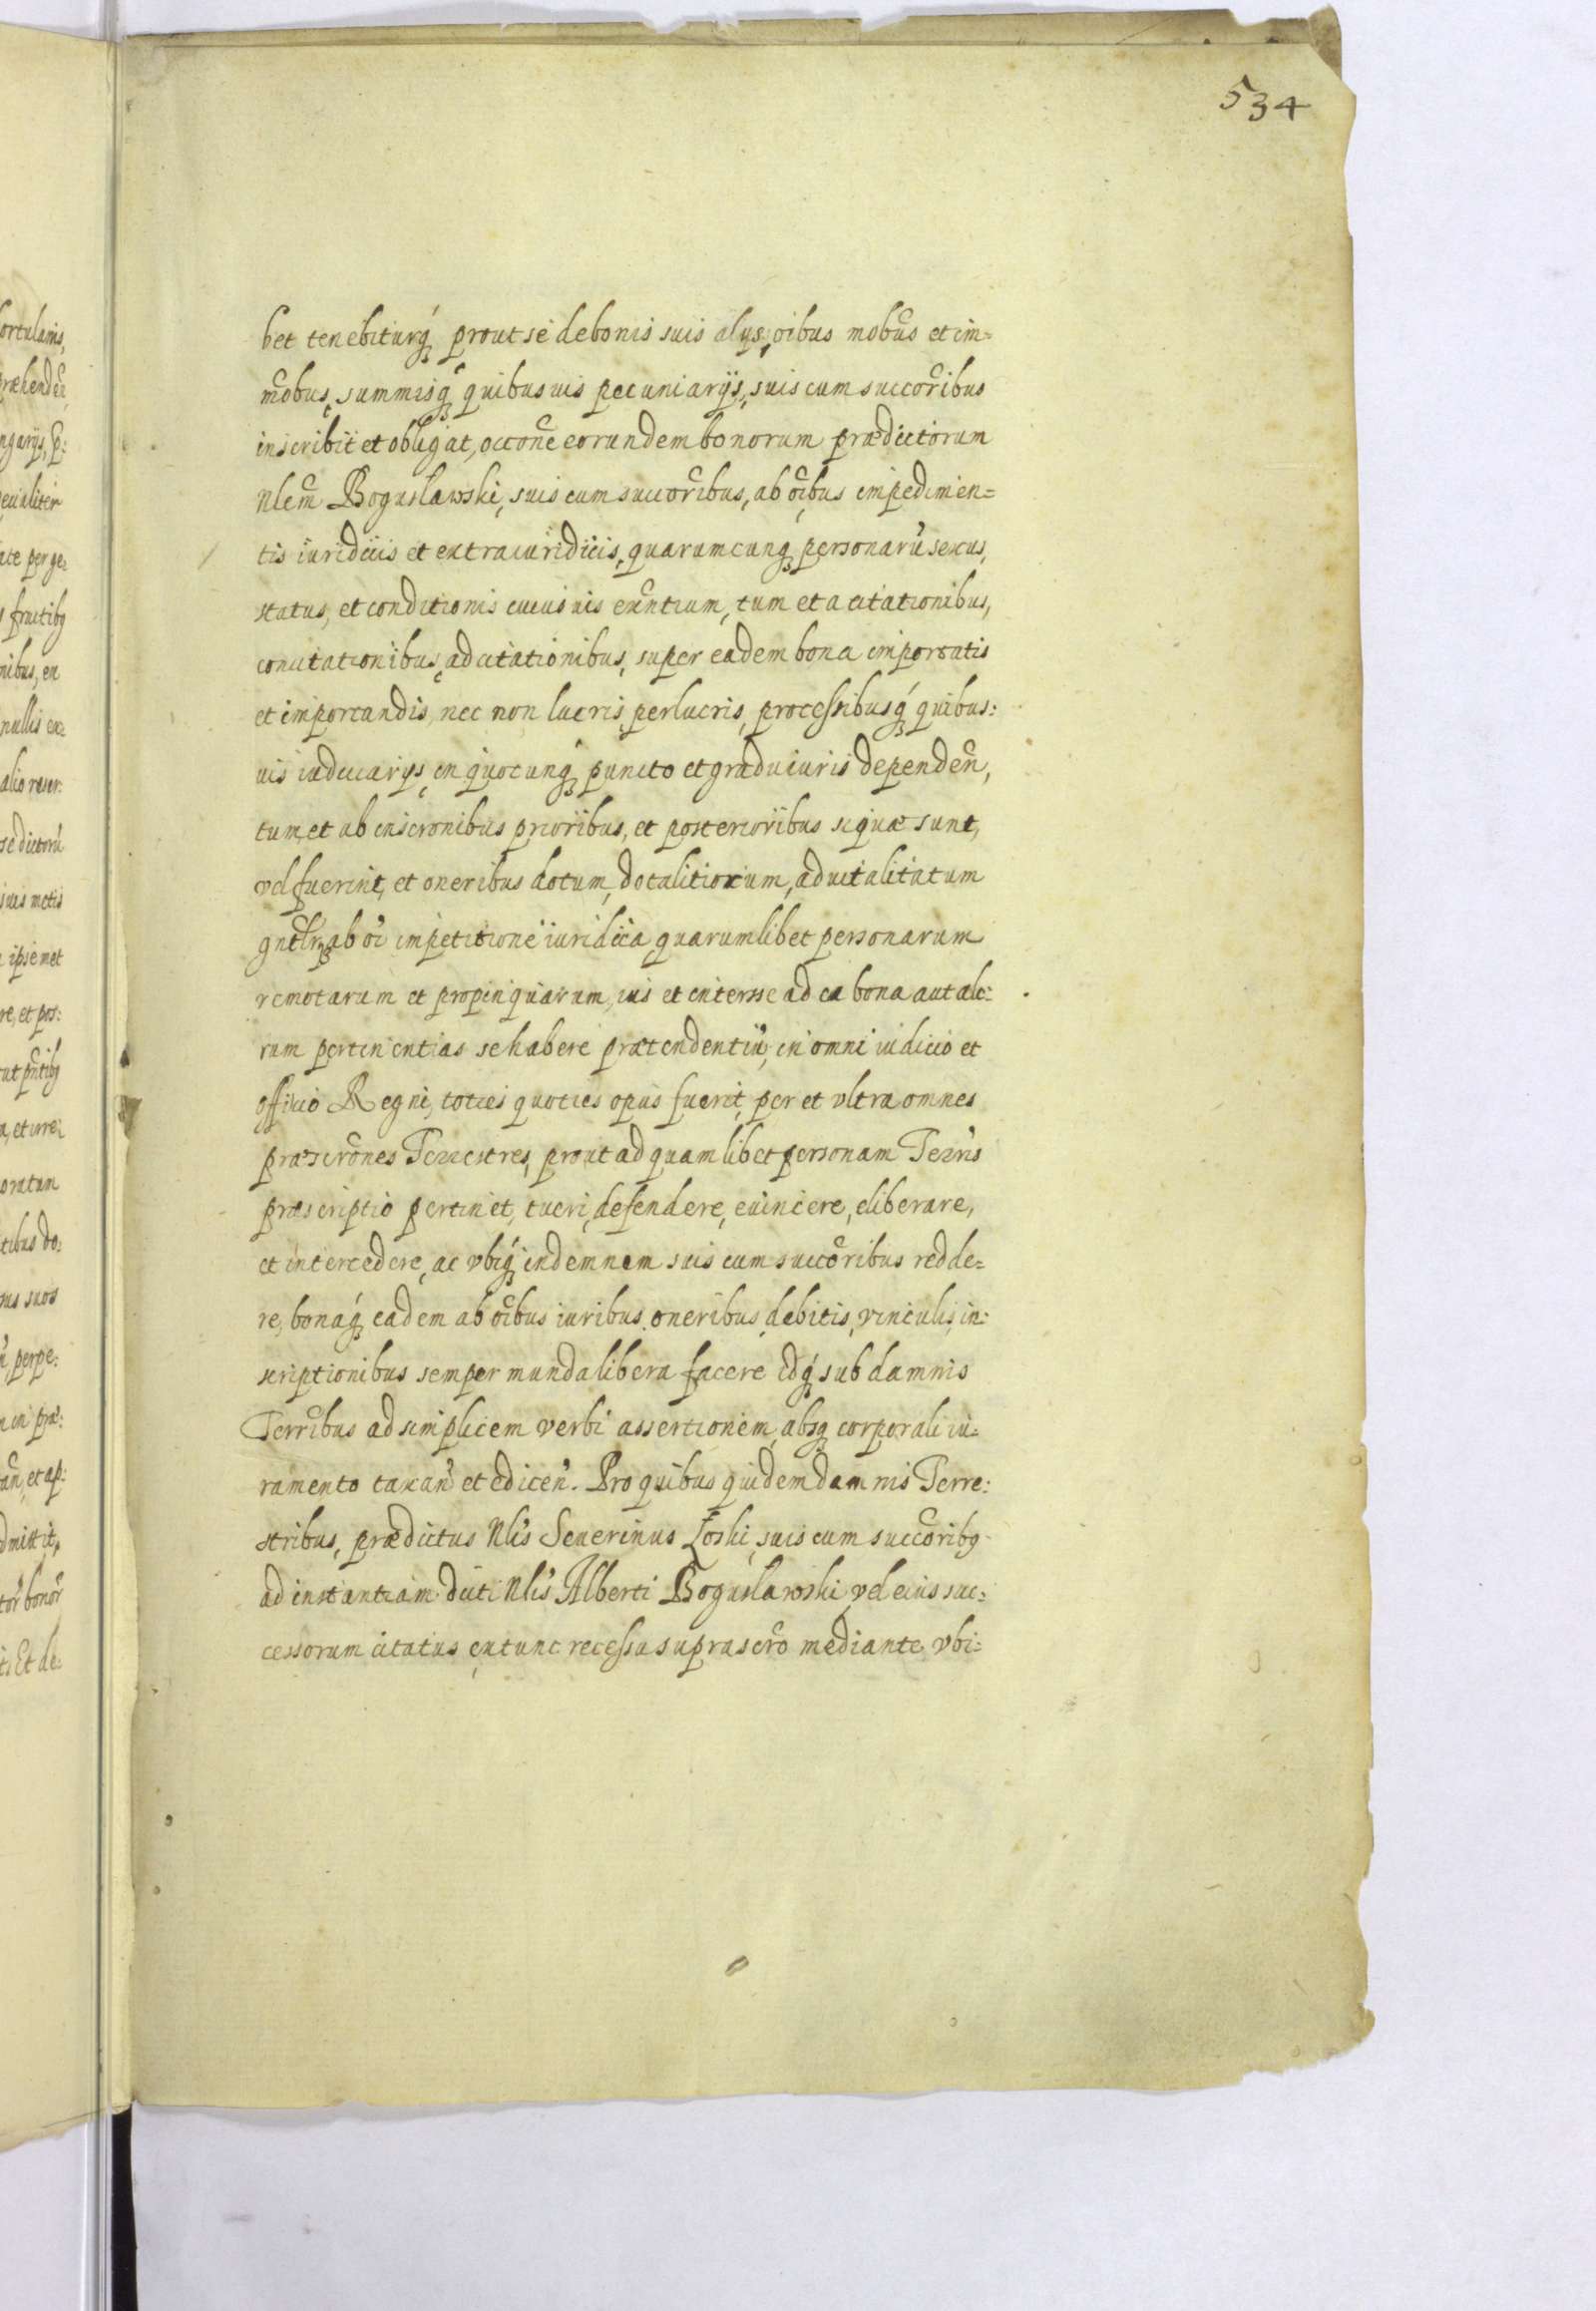 534
bet tenebiturq́ꝫ prout se de bonis suis alijs, oibus mobũs et im=
mobus, summisq́ꝫ quibusuis pecuniarijs, suis cum succõribus
inscribit et obligat, occõne eorundem bonorum prædictorum
Nlem̃ Boguslawski, suis cum succõribus, ab oĩbus impedimen=
tis iuridicis et extraiuridicis, quarumcunqꝫ personarũ sexus,
status, et conditionis cuiusuis exñtium, tum et a citationibus,
concitationibus, adcitationibus, super eadem bona importatis
et importandis, nec non lucris, perlucris, processibusq́ꝫ quibus:
uis iudiciarijs, in quocunqꝫ puncto et gradu iuris dependeñ,
tum, et ab inscronibus prioribus, et posterioribus si quæ sunt,
vel fuerint, et oneribus dotum, dotalitiorum, aduitalitatum
gnẽlrꝫ ab oi impetitione iuridica quarumlibet personarum
remotarum et propinquarum, ius et interesse ad ea bona aut alc:
rum pertinentias se habere prætendentiũ, in omni iudicio et
officio Regni, toties quoties opus fuerit, per et vltra omnes
præscrõnes Terrestres, prout ad quamlibet personam Terrꝰis
præscriptio pertinet, tueri, defendere, euincere, eliberare,
et intercedere, ac vbiq́ꝫ indemnem suis cum succõribus redde=
re, bonaq́ꝫ eadem ab oĩbus iuribus, oneribus, debitis, vinculis, in:
scriptionibus semper munda libera facere Idq́ꝫ sub damnis
Terrĩbus ad simplicem verbi assertionem, absqꝫ corporali iu=
ramento taxañ et ediceñ. Pro quibus quidem damnis Terre:
stribus, prædictus Nlis Seuerinus Łoski, suis cum succõribꝫ
ad instantiam dicti Nlis Alberti Boguslawski, vel eius suc:
cessorum citatus, extunc recessu suprascrõ mediante vbi=